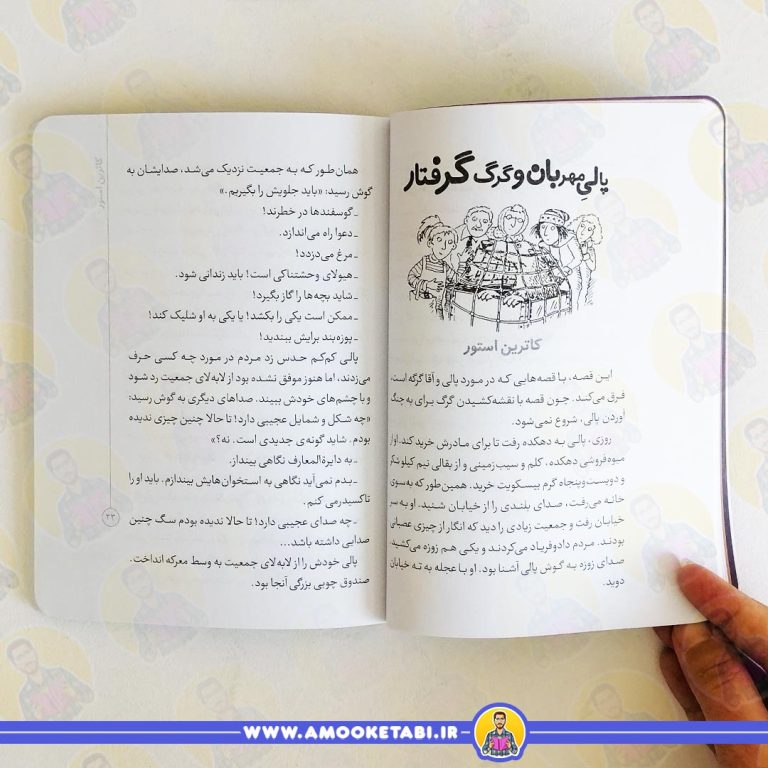 پالیِ مهربان و گرگ گرفتار
کاترین استور
این قصه، با قصه‌هایی که در مورد پالی و آقا گرگه است،
فرق می‌کند. چون قصه با نقشه‌کشیدن گرگ برای به چنگ
آوردن پالی، شروع نمی‌شود.
روزی، پالی به دهکده رفت تا برای مادرش خرید کند. اول از
میوه‌فروشی دهکده، کلم و سیب‌زمینی و از بقالی نیم کیلو شکر
و دویست‌وپنجاه گرم بیسکویت خرید. همین‌طور که به سوی
خانه می‌رفت، صدای بلندی را از خیابان شنید. او به سر
خیابان رفت و جمعیت زیادی را دید که انگار از چیزی عصبانی
بودند. مردم دادوفریاد می‌کردند و یکی هم زوزه می‌کشید.
صدای زوزه به گوش پالی آشنا بود. او با عجله به ته خیابان
دوید.
کاترین استور
همان طور که به جمعیت نزدیک می‌شد، صدایشان به
گوش رسید: «باید جلویش را بگیریم.»
ـ گوسفندها در خطرند!
ـ دعوا راه می‌اندازد.
ـ مرغ می‌دزدد!
ـ هیولای وحشتناکی است! باید زندانی شود.
ـ شاید بچه‌ها را گاز بگیرد!
ـ ممکن است یکی را بکشد! یا یکی به او شلیک کند!
ـ پوزه‌بند برایش ببندید!
پالی کم‌کم حدس زد مردم در مورد چه کسی حرف
می‌زدند، اما هنوز موفق نشده بود از لابه‌لای جمعیت رد شود
و با چشم‌های خودش ببیند. صداهای دیگری به گوش رسید:
«چه شکل و شمایل عجیبی دارد! تا حالا چنین چیزی ندیده
بودم. شاید گونه‌ی جدیدی است. نه؟»
ـ به دایرةالمعارف نگاهی بینداز.
ـ بدم نمی‌آید نگاهی به استخوان‌هایش بیندازم. باید او را
تاکسیدرمی کنم.
ـ چه صدای عجیبی دارد! تا حالا ندیده بودم سگ چنین
صدایی داشته باشد...
پالی خودش را از لابه‌لای جمعیت به وسط معرکه انداخت.
صندوق چوبی بزرگی آنجا بود.
۳۳
WWW.AMOOKETABI.IR